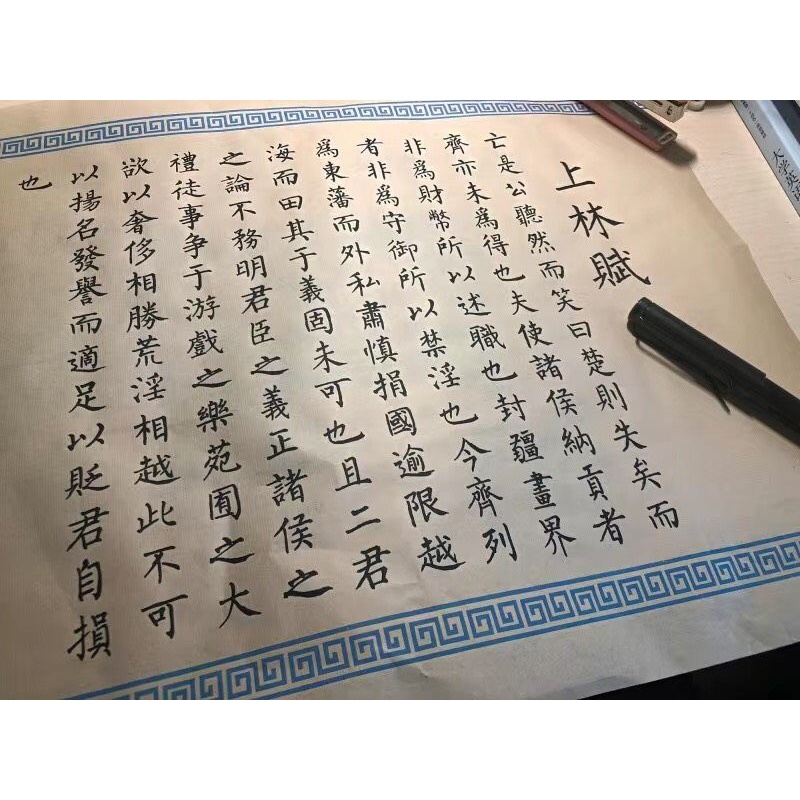 上林賦
亡是公聽然而笑曰楚則失矣而
齊亦未爲得也夫使諸侯納貢者
非爲財幣所以述職也封疆畫界
者非爲守御所以禁淫也今齊列
爲東藩而外私肅慎捐國逾限越
海而田其于義固未可也且二君
之論不務明君臣之義正諸侯之
禮徒事争于游戲之樂苑囿之大
欲以奢侈相勝荒淫相越此不可
以揚名發譽而適足以貶君自損
也
大学